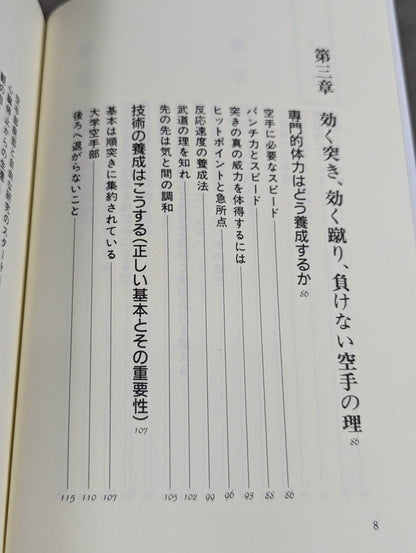 第三章　効く突き、効く蹴り、負けない空手の理 86
専門的体力はどう養成するか 86
空手に必要なスピード 86
パンチ力とスピード 88
突きの真の威力を体得するには 93
ヒットポイントと急所点 96
反応速度の養成法 99
武道の理を知れ 102
先の先は気と間の調和 105
技術の養成はこうする（正しい基本とその重要性） 107
基本は順突きに集約されている 107
大学空手部 110
後ろへ退がらないこと 115
8